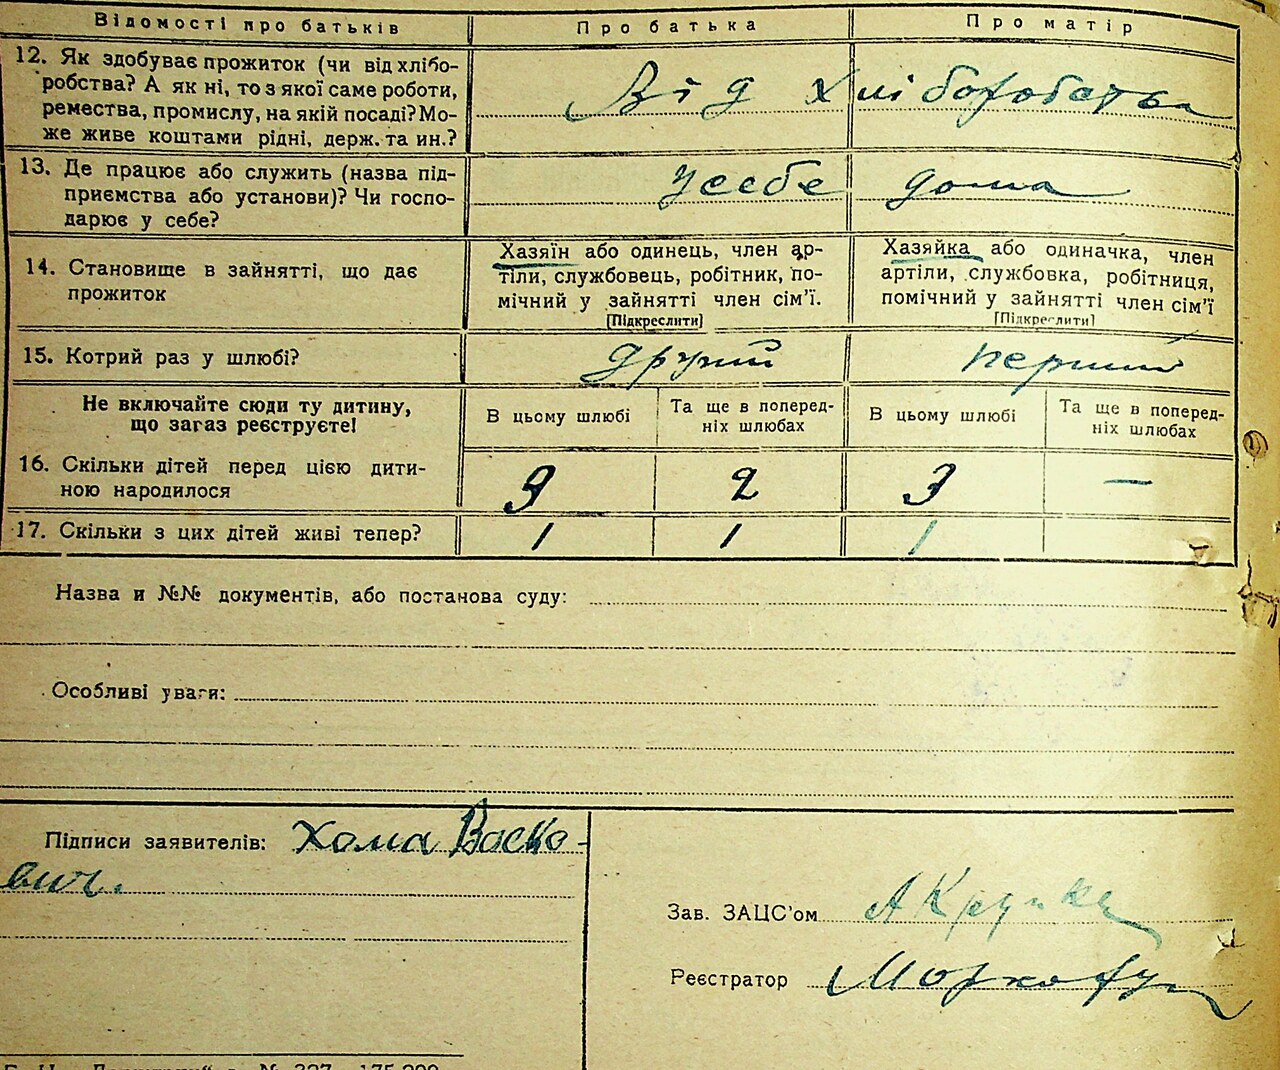 Відомості про батьків Про батька Про матір
12. Як здобуває прожиток (чи від хлібо-
робства? А як ні, то з якої саме роботи,
ремества, промислу, на якій посаді? Мо-
же живе коштами рідні, держ. та ин.?
Від хліборобства
13. Де працює або служить (назва під-
приємства або установи)? Чи госпо-
дарює у себе?
у себе дома
14. Становище в зайнятті, що дає
прожиток
Хазяїн або одинець, член ар-
тіли, службовець, робітник, по-
мічний у зайнятті член сім'ї.
[Підкреслити]
Хазяйка або одиначка, член
артіли, службовка, робітниця,
помічний у зайнятті член сім'ї
[Підкреслити]
15. Котрий раз у шлюбі? другий перший
Не включайте сюди ту дитину,
що загаз реєструєте!
В цьому шлюбі
Та ще в поперед-
ніх шлюбах
В цьому шлюбі
Та ще в поперед-
ніх шлюбах
16. Скільки дітей перед цією дити-
ною народилося
3 2 3 —
17. Скільки з цих дітей живі тепер? 1 1 1
Назва и №№ документів, або постанова суду:
Особливі уваги:
Підписи заявителів: Хома Васко-
вич.
Зав. ЗАЦС'ом
Реєстратор